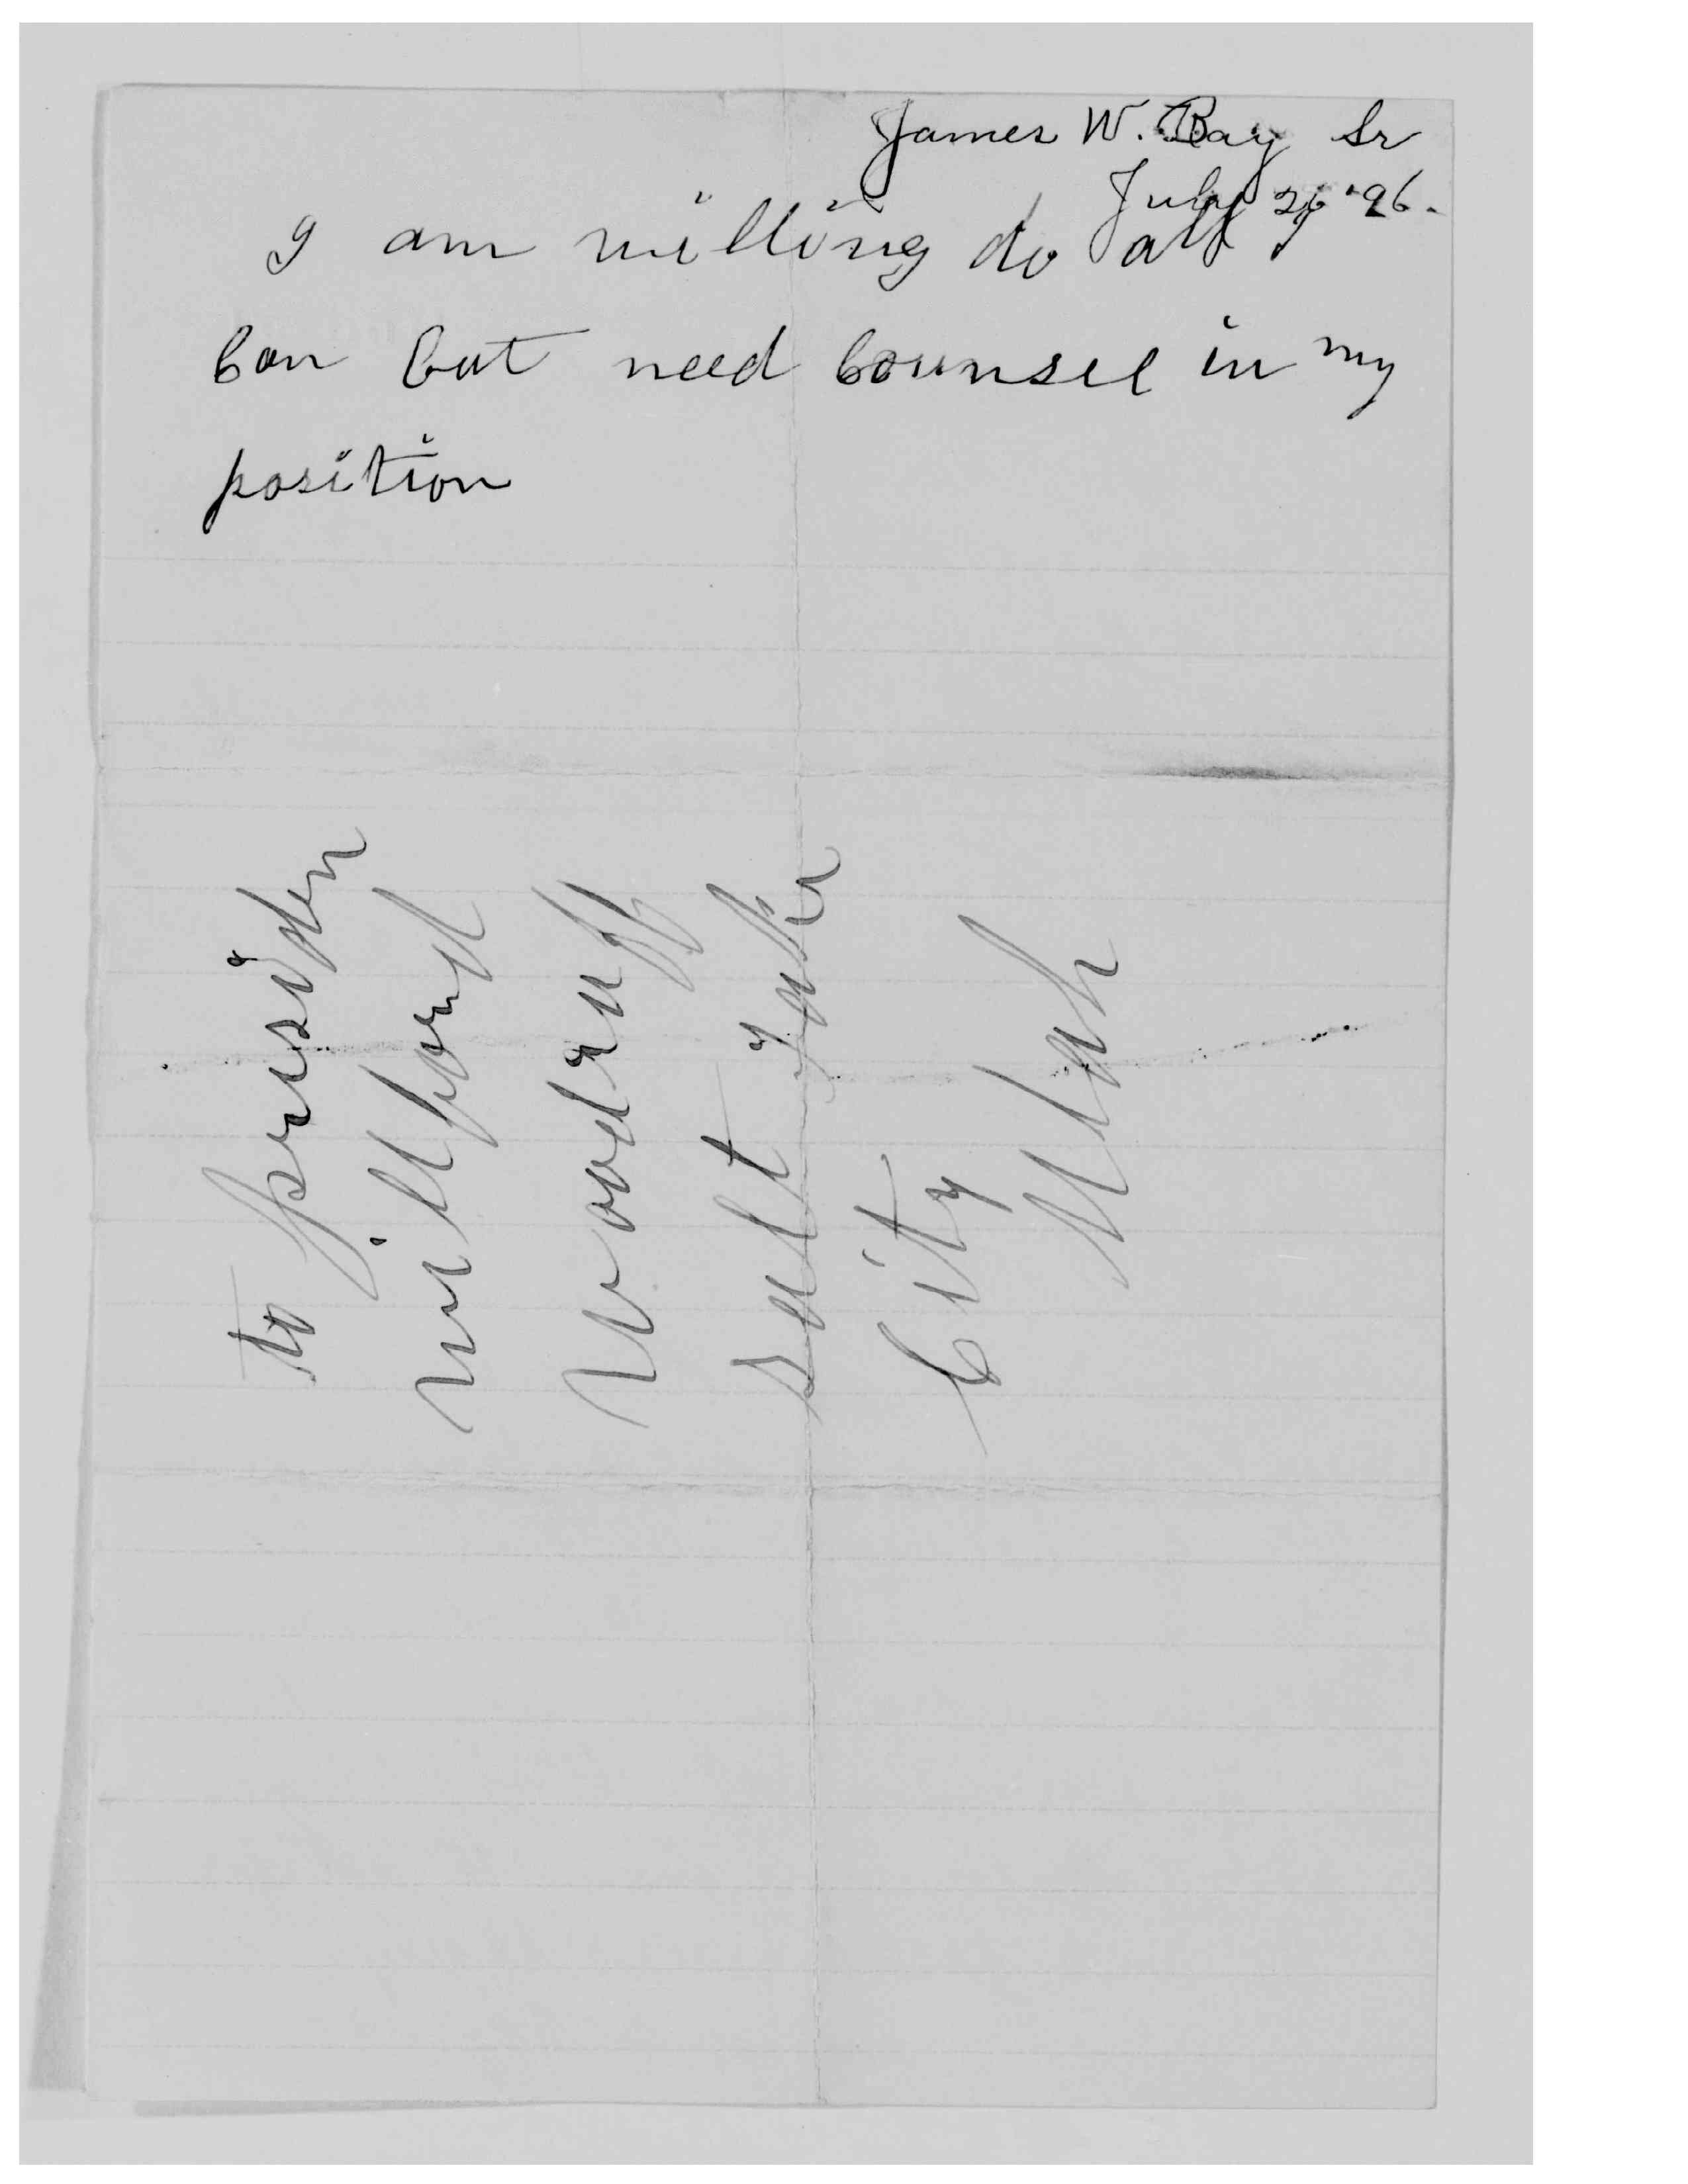 James W. Bay Sr
July 26 '96.
I am willing do all I
Can but need Counsel in my
position
to presiden
willford
Woodruff
Salt Lake
City
Utah